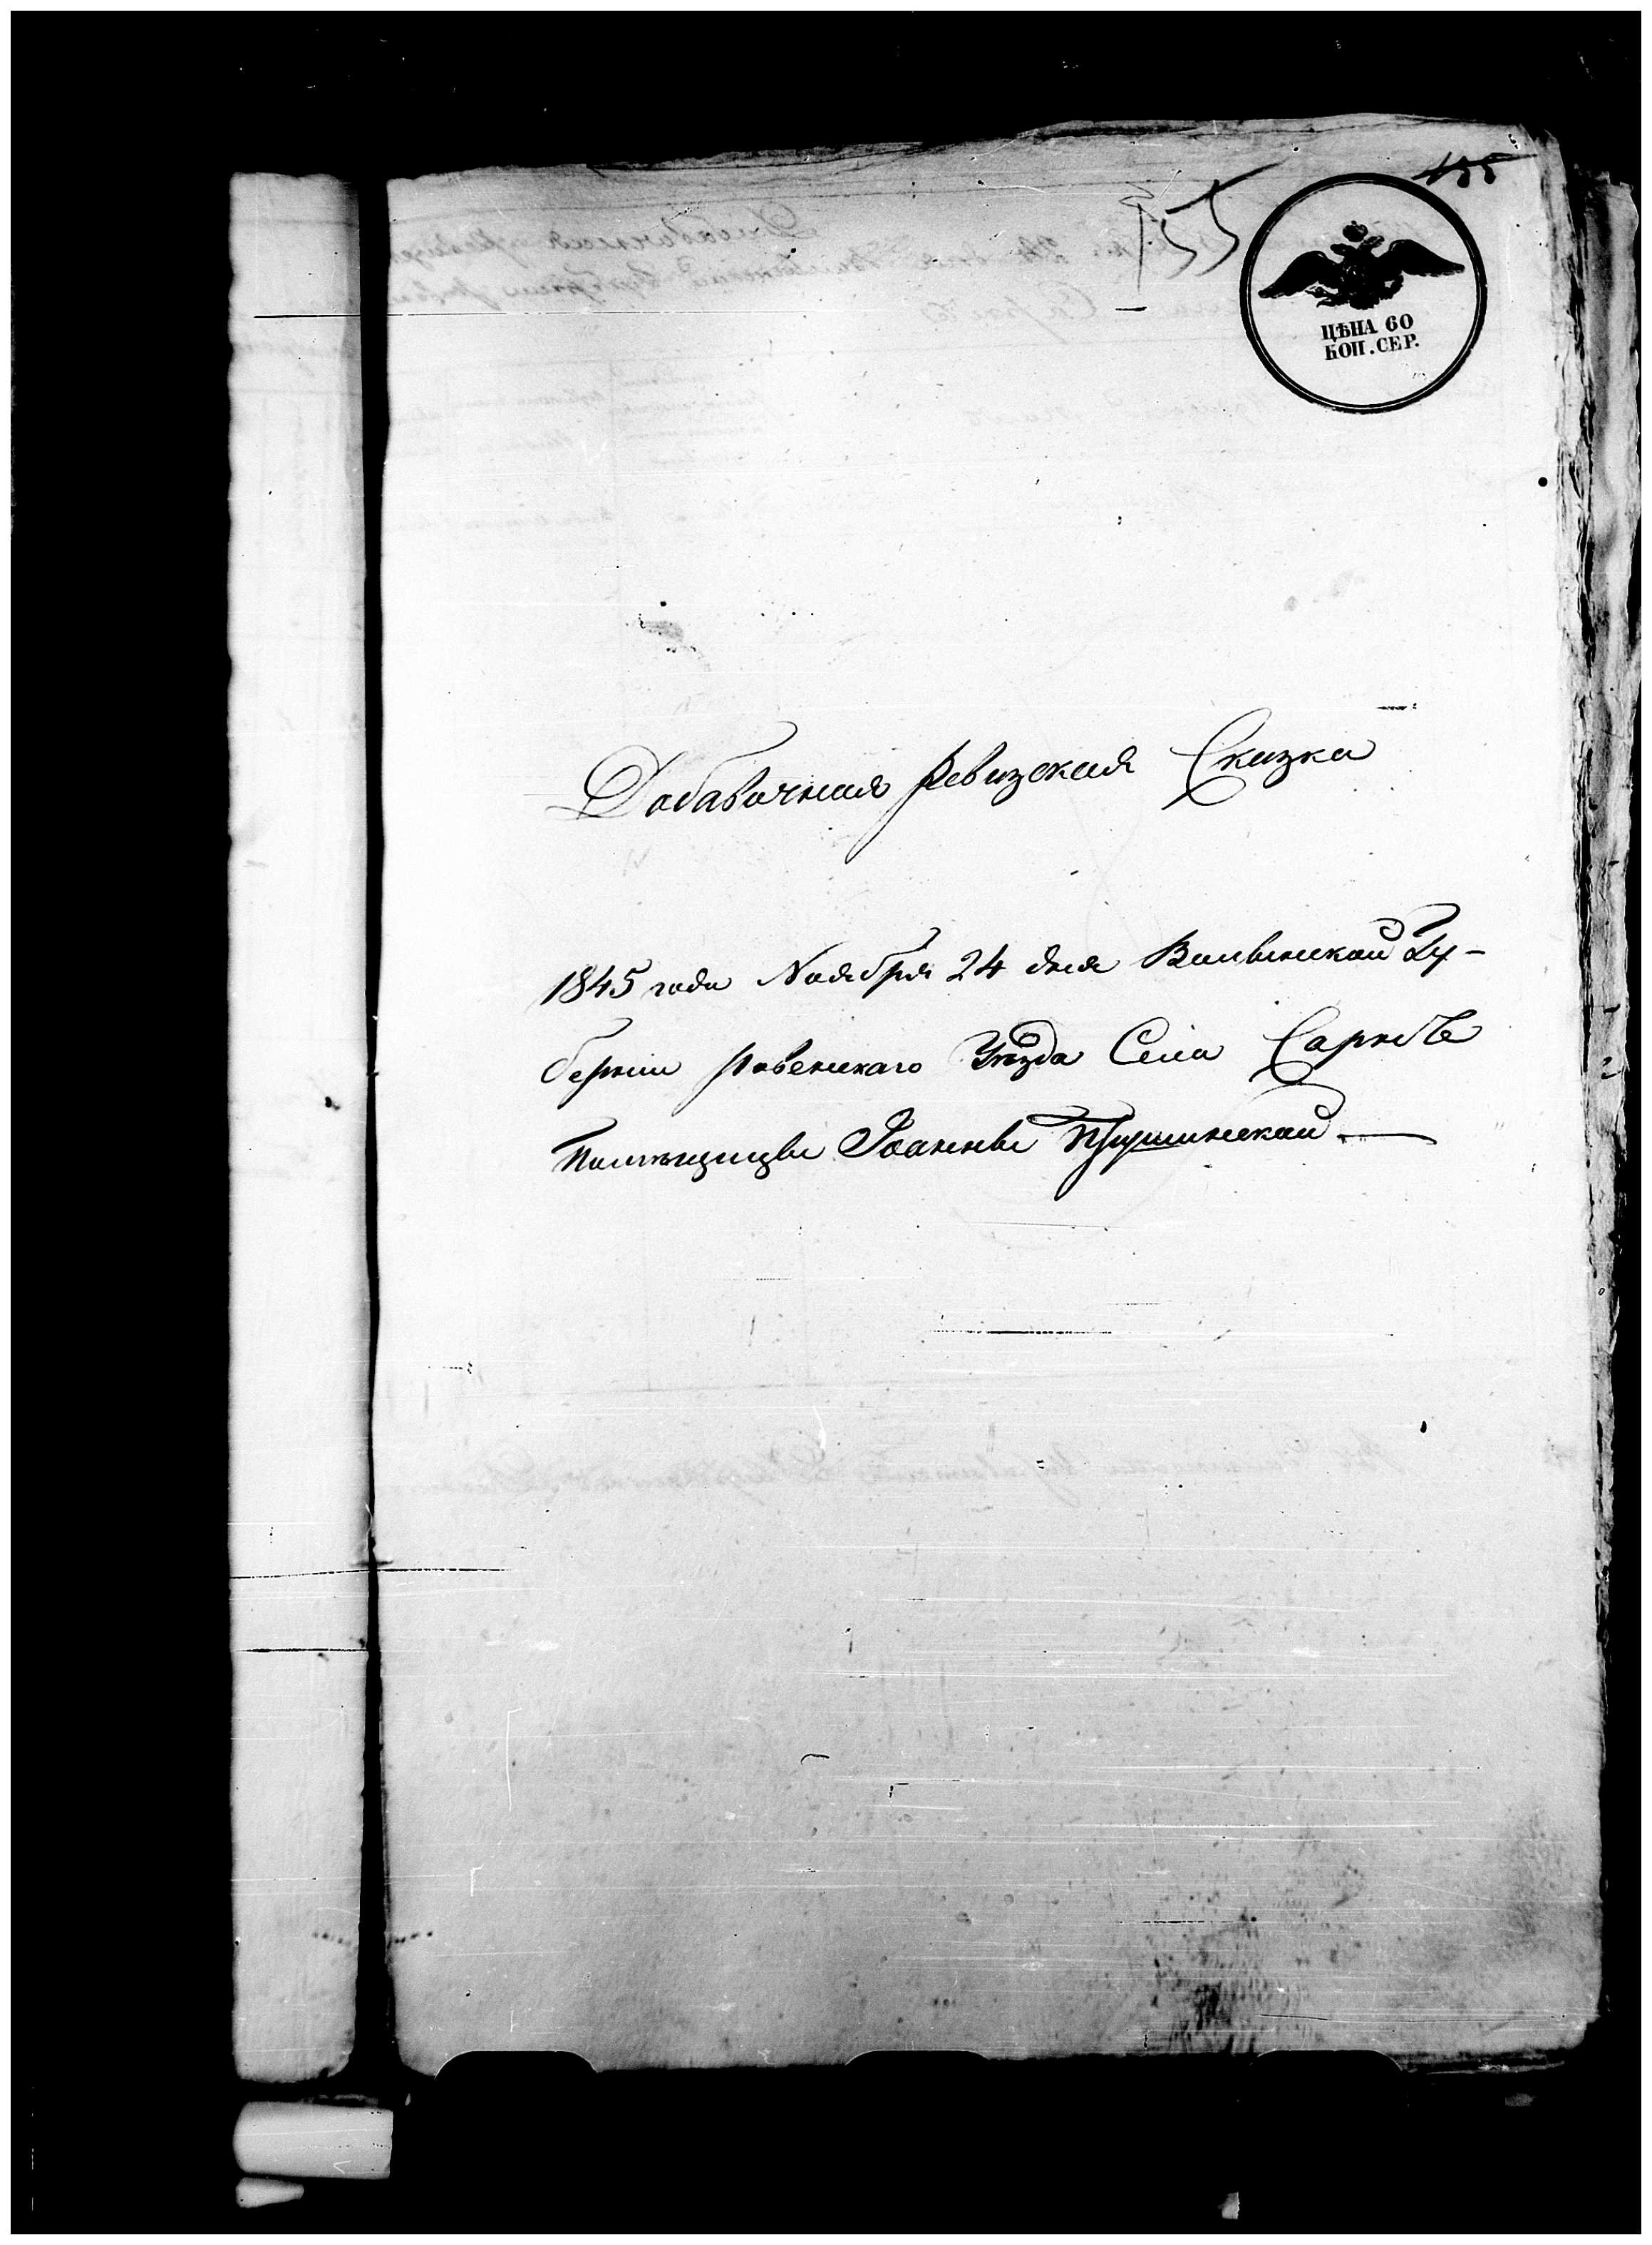 155
ЦѢНА 60
КОП. СЕР.
Добавочная Ревизская Сказка
1845 года Ноября 24 дня Волынской Гу-
берніи Ровенскаго Уѣзда Села Сарнъ
Помѣщицы Іоанны